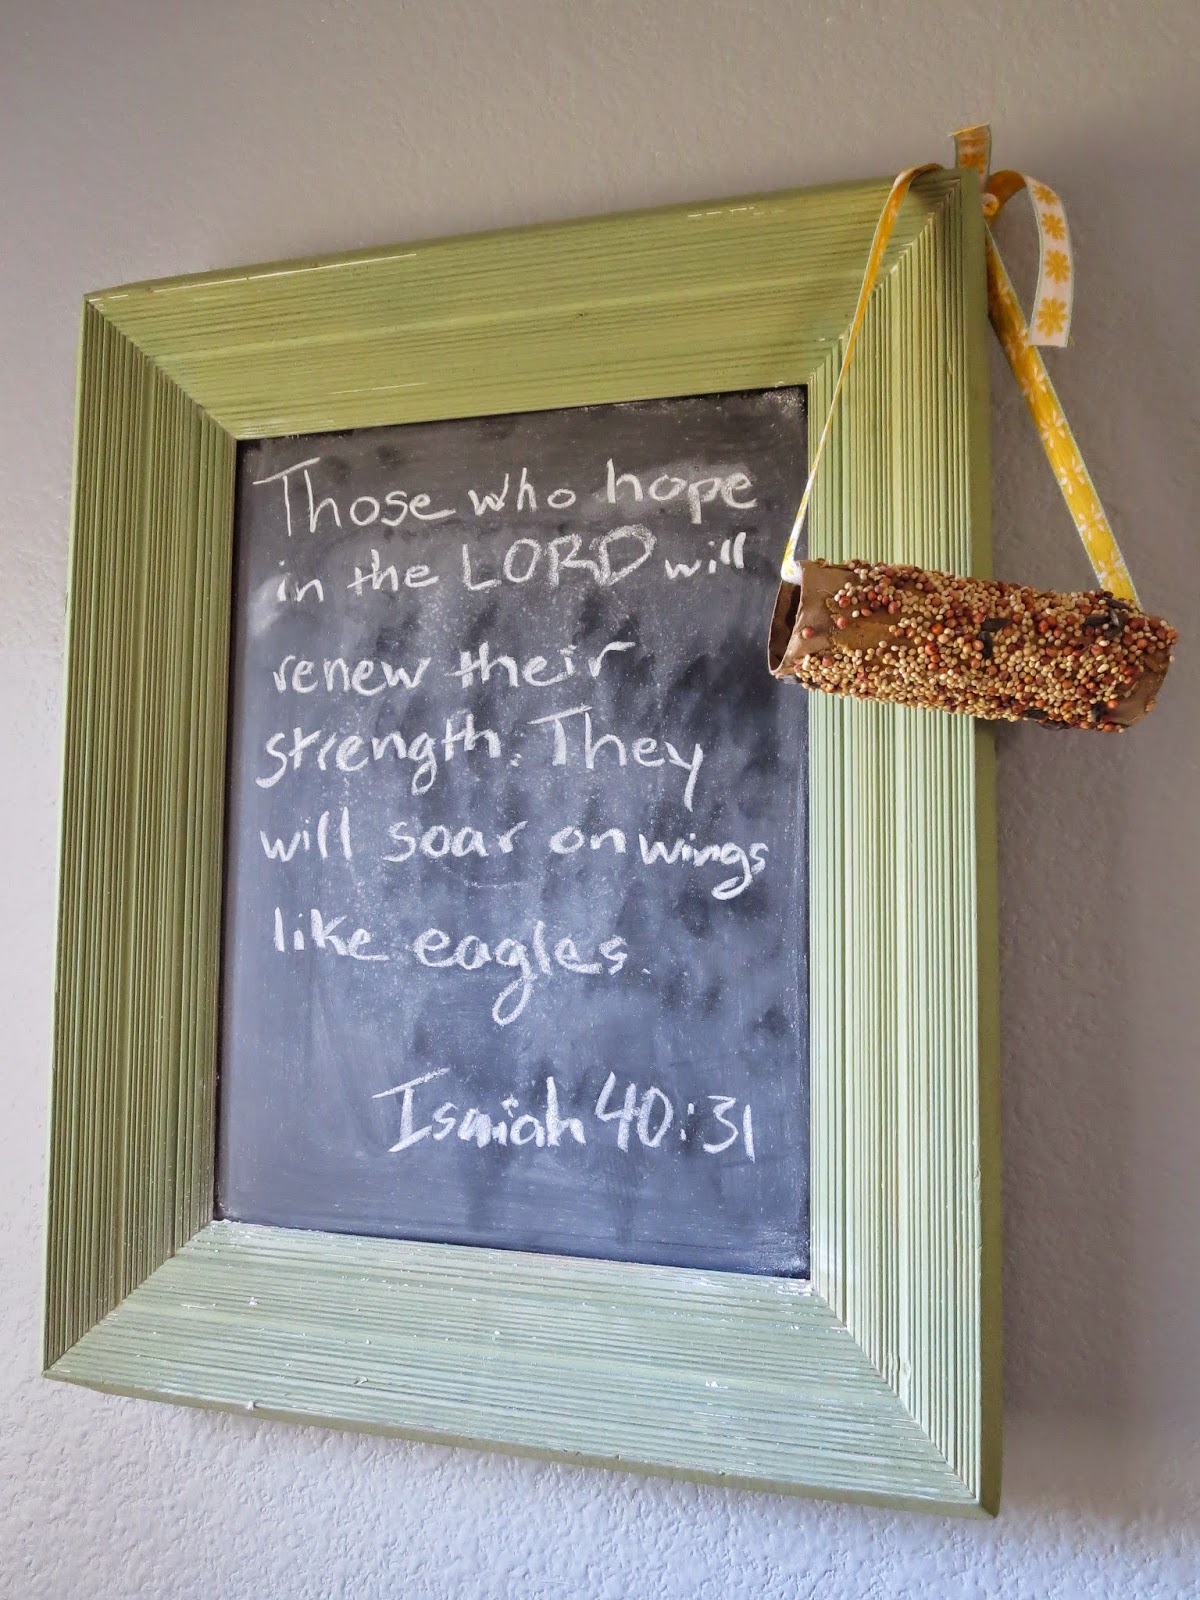 Those who hope
in the LORD will
renew their
strength. They
will soar on wings
like eagles.
Isaiah 40:31